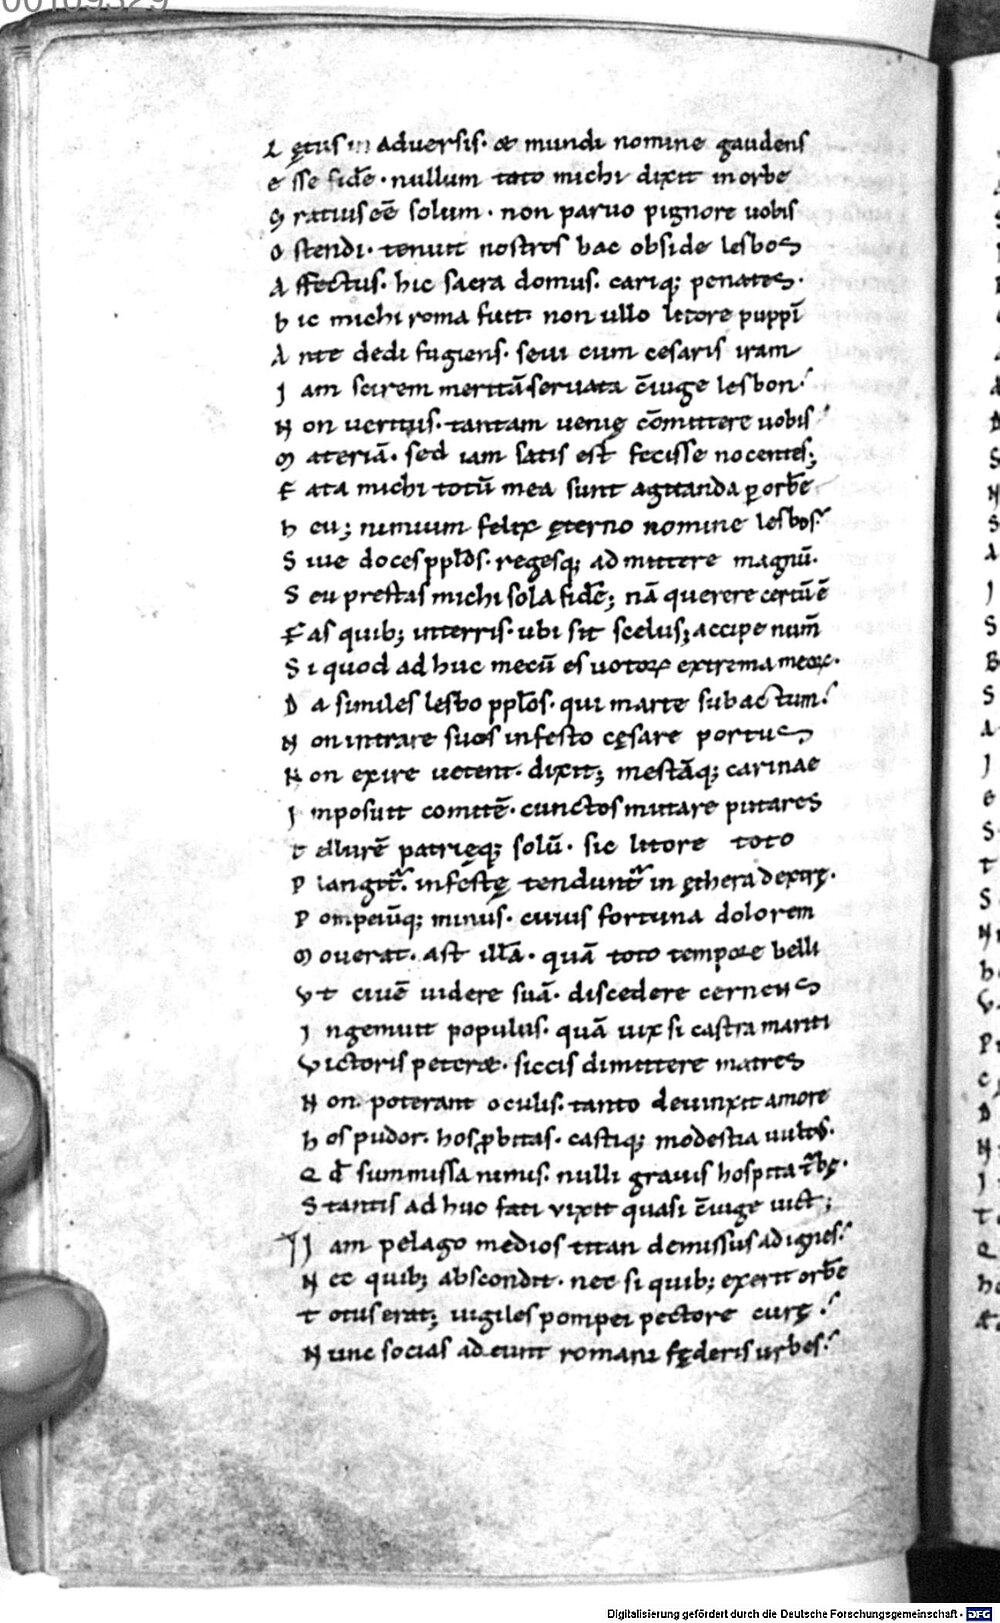 00109329
L ętus in adversis. & mundi nomine gaudens
e sse fidē. nullum toto michi dixit in orbe
G ratius eē solum. non parvo pignore vobis
O stendi. tenuit nostros hac obside lesbos
A ffectus. hic sacra domus. cariq; penates.
h ic michi roma fuit. non ullo litore puppī
A nte dedi fugiens. sevi cum cesaris iram
J am scirem meritā servata c̄iuge lesbon.
N on veritus. tantam venię cōmittere vobis
M ateriā. sed iam satis est fecisse nocentes;
F ata michi totū mea sunt agitanda p orbē
h eu; nimium felix ęterno nomine lesbos.
S ive doces pplōs. regesq; admittere magnū.
S eu prestas michi sola fidē; nā querere certū ē
F as quib; interris. ubi sit scelus; accipe num̄
S i quod ad huc mecū es votoꝝ extrema meoꝝ.
D a similes lesbo pplōs. qui marte subactum.
N on intrare suos infesto cęsare portus
N on exire vetent. dixit; mestāq; carinae
J mposuit comitē. cunctos mutare putares
T ellurē patrięq; solū. sic litore toto
P langit̄. infestę tendunt̄ in ęthera dextrę.
P ompeiūq; minus. cuius fortuna dolorem
M overat. ast illā. quā toto tempore belli
V t civē videre suā. discedere cernens
J ngemuit populus. quā vix si castra mariti
V ictoris peter&. siccis dimittere matres
N on. poterant oculis. tanto devinxit amore
h os pudor. hos p̱bitas. castiq; modestia vultus.
Q d̄ summissa nimis. nulli gravis hospita t̄bę.
S tantis ad huc fati vixit quasi c̄iuge vict̄;
J am pelago medios titan demissus ad ignes.
N ec quib; abscondit. nec si quib; exerit orbē
T otus erat; vigiles pompei pectore curę.
N unc socias adeunt romani fęderis urbes.
Digitalisierung gefördert durch die Deutsche Forschungsgemeinschaft - DFG